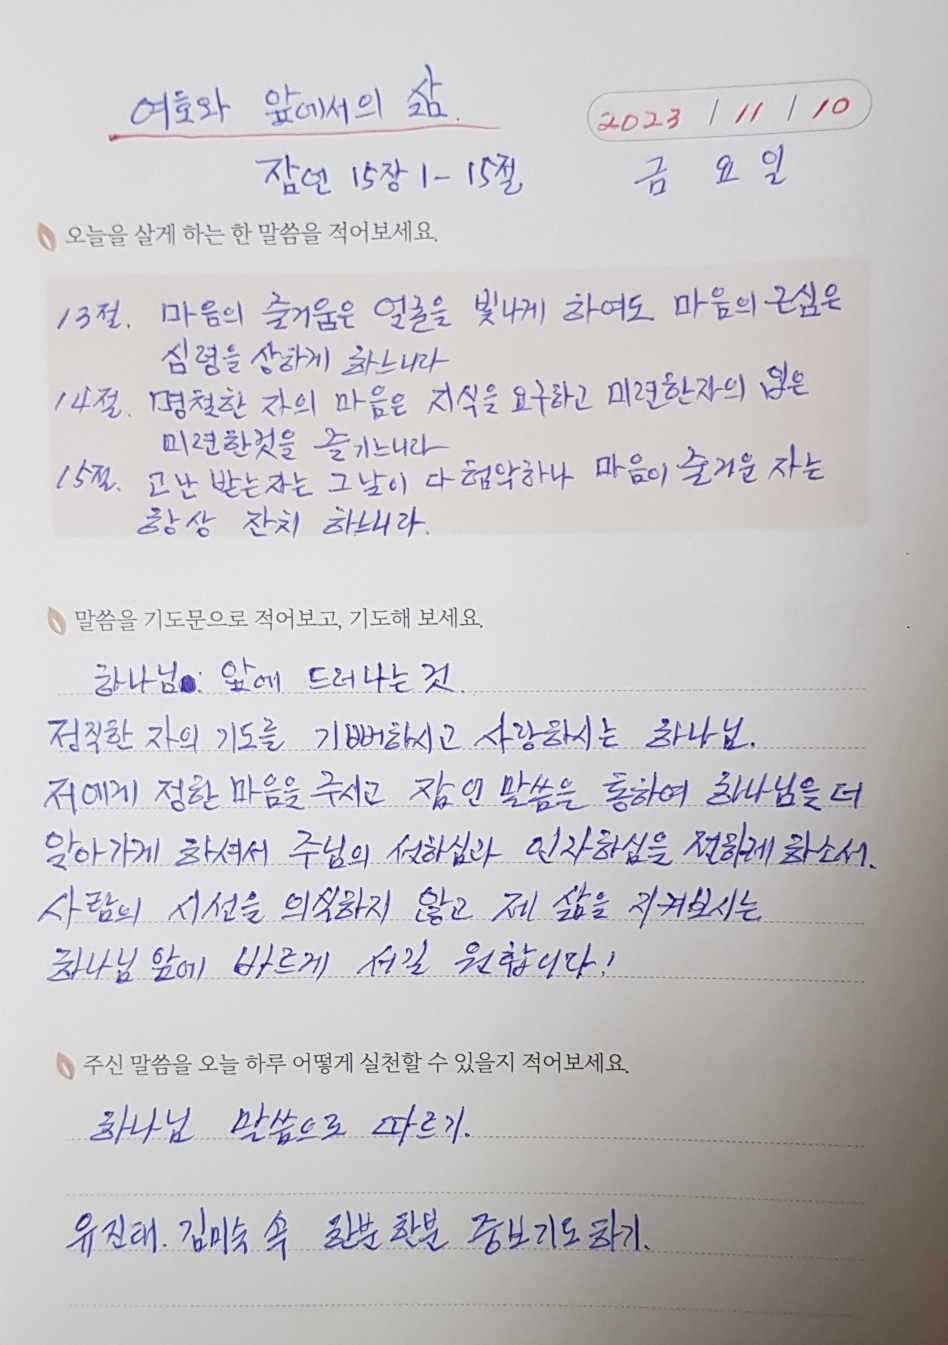 여호와 앞에서의 삶.
2023 / 11 / 10
잠언 15장 1-15절
금 요 일
오늘을 살게 하는 한 말씀을 적어보세요.
13절. 마음의 즐거움은 얼굴을 빛나게 하여도 마음의 근심은
심령을 상하게 하느니라
14절. 명철한 자의 마음은 지식을 요구하고 미련한자의 입은
미련한것을 즐기느니라
15절. 고난 받는자는 그날이 다 험악하나 마음이 즐거운 자는
항상 잔치 하느니라.
말씀을 기도문으로 적어보고, 기도해 보세요.
하나님 앞에 드러나는 것.
정직한 자의 기도를 기뻐하시고 사랑하시는 하나님.
저에게 정한 마음을 주시고 잠언 말씀을 통하여 하나님을 더
알아가게 하셔서 주님의 선하심과 인자하심을 전하게 하소서.
사람의 시선을 의식하지 않고 제 삶을 지켜보시는
하나님 앞에 바르게 서길 원합니다!
주신 말씀을 오늘 하루 어떻게 실천할 수 있을지 적어보세요.
하나님 말씀으로 따르기.
유진태. 김미숙 속 한분 한분 중보기도하기.